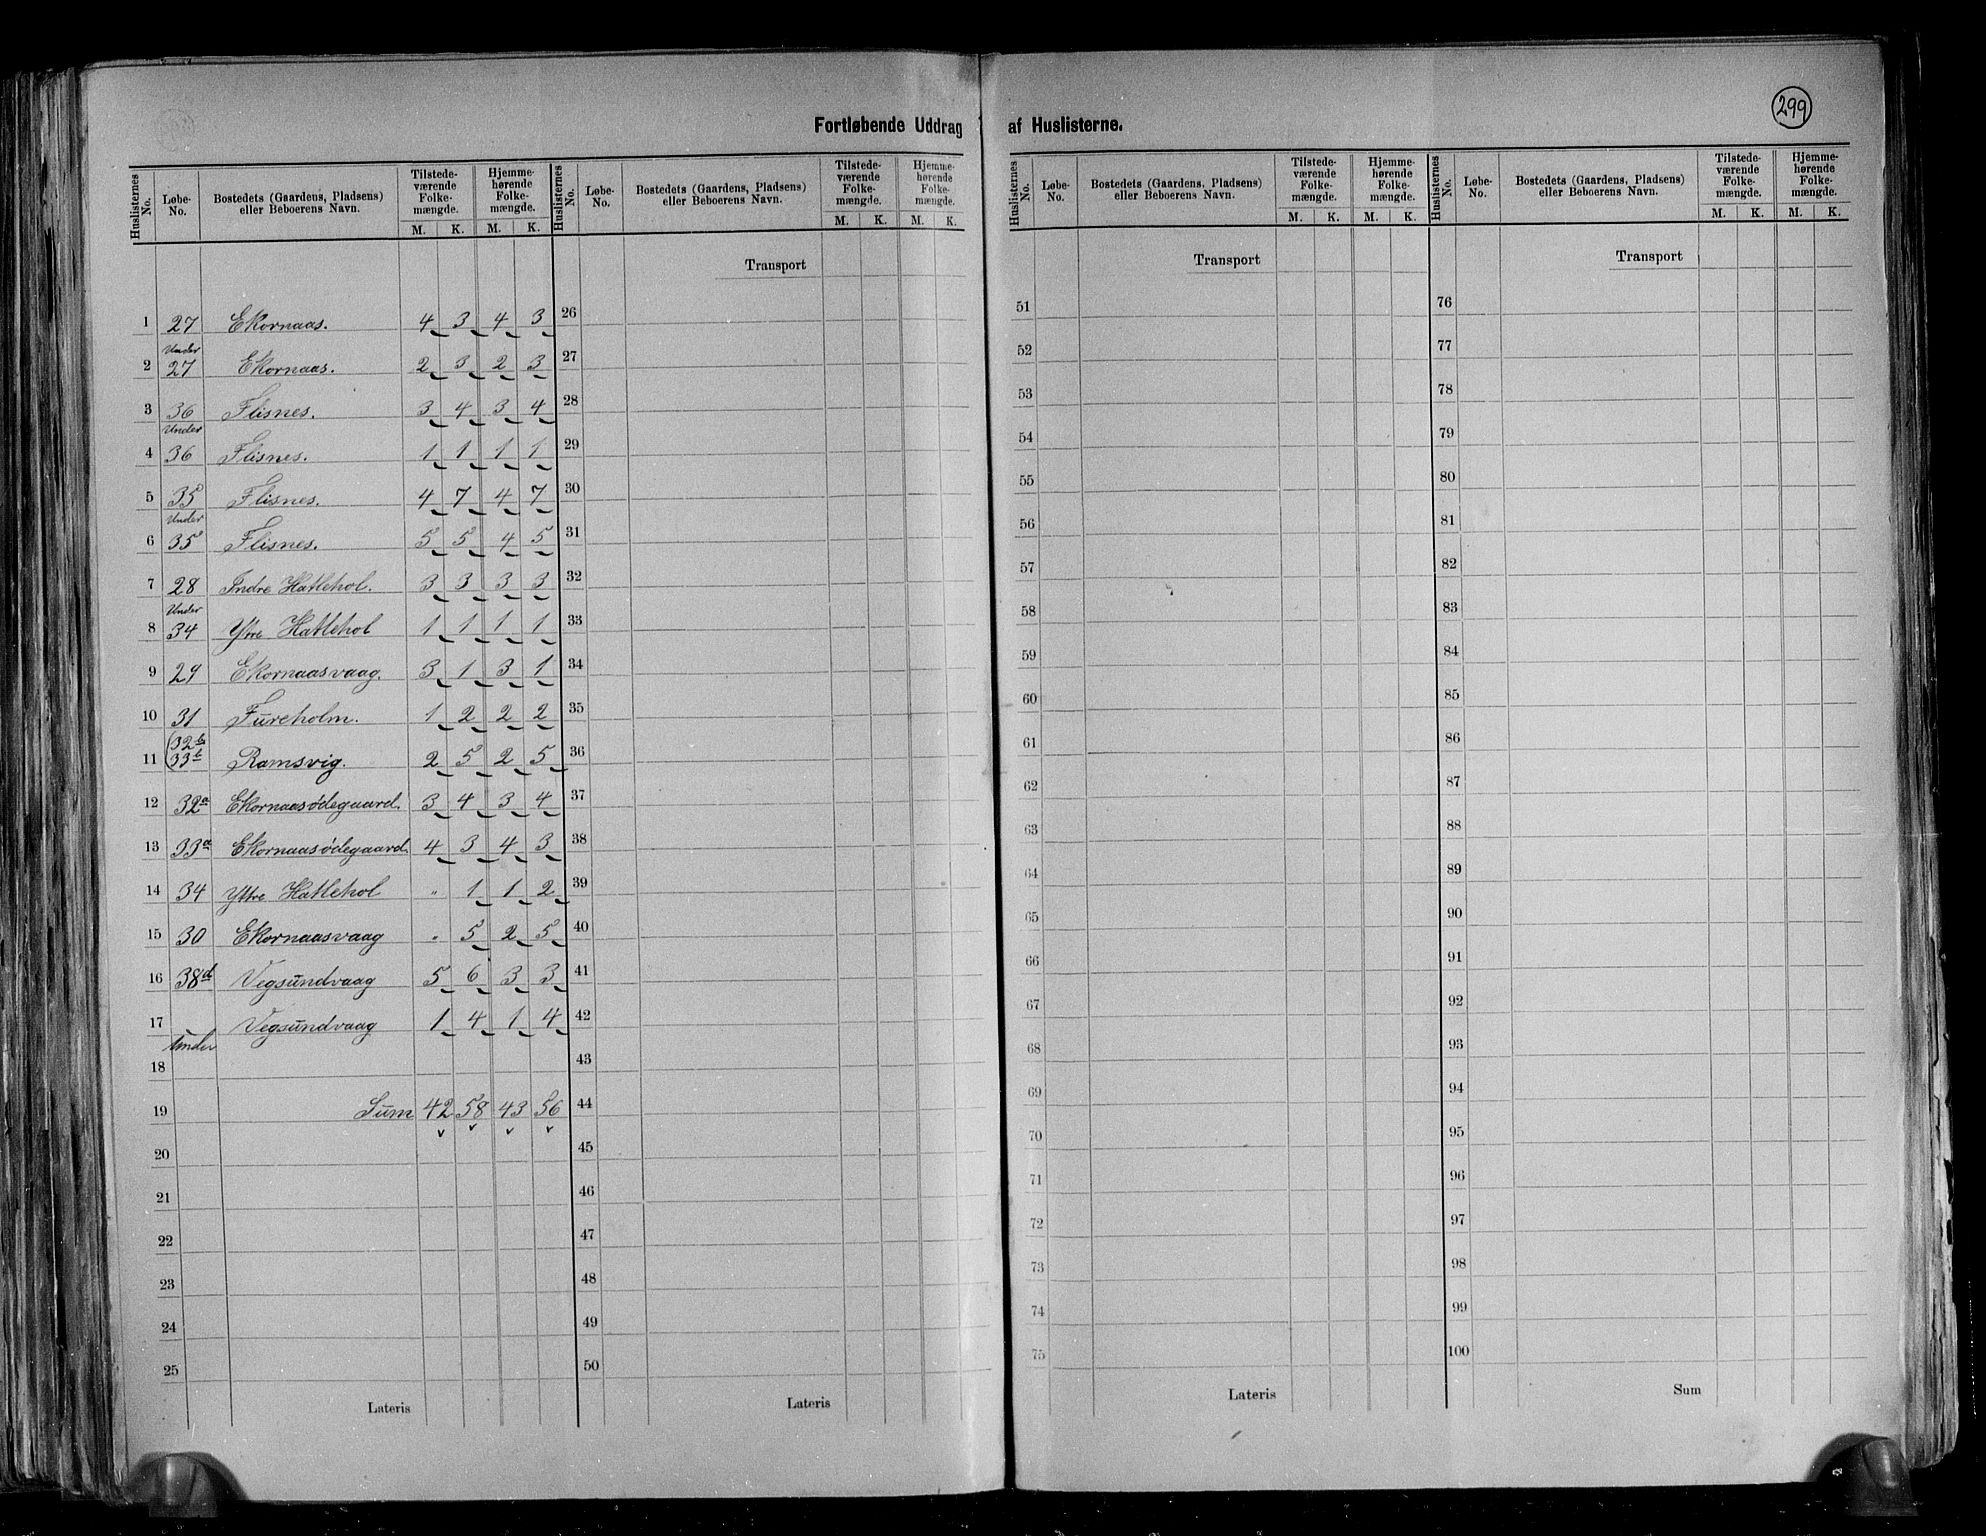 299
Fortløbende Uddrag af Huslisterne.
Huslisternes No. | Løbe-No. | Bostedets (Gaardens, Pladsens) eller Beboerens Navn. | Tilstedeværende Folkemængde. M. K. | Hjemmehørende Folkemængde. M. K.
1 27 Ekornaas. 4 3 4 3
2 Under 27 Ekornaas. 2 3 2 3
3 36 Flisnes. 3 4 3 4
4 Under 36 Flisnes. 1 1 1 1
5 35 Flisnes. 4 7 4 7
6 Under 35 Flisnes. 5 5 4 5
7 28 Indre Hatlehol. 3 3 3 3
8 Under 34 Ytre Hatlehol 1 1 1 1
9 29 Ekornaasvaag. 3 1 3 1
10 31 Fureholm. 1 2 2 2
11 (32b 33b Ramsvig. 2 5 2 5
12 32a Ekornaasødegaard. 3 4 3 4
13 33a Ekornaasødegaard. 4 3 4 3
14 34 Ytre Hatlehol " 1 1 2
15 30 Ekornaasvaag " 5 2 5
16 38d Vegsundvaag 5 6 3 3
17 Under Vegsundvaag 1 4 1 4
18
19 Sum 42 58 43 56
20
21
22
23
24
25
Lateris
Huslisternes No. | Løbe-No. | Bostedets (Gaardens, Pladsens) eller Beboerens Navn. | Tilstedeværende Folkemængde. M. K. | Hjemmehørende Folkemængde. M. K.
Transport
26
27
28
29
30
31
32
33
34
35
36
37
38
39
40
41
42
43
44
45
46
47
48
49
50
Lateris
Huslisternes No. | Løbe-No. | Bostedets (Gaardens, Pladsens) eller Beboerens Navn. | Tilstedeværende Folkemængde. M. K. | Hjemmehørende Folkemængde. M. K.
Transport
51
52
53
54
55
56
57
58
59
60
61
62
63
64
65
66
67
68
69
70
71
72
73
74
75
Lateris
Huslisternes No. | Løbe-No. | Bostedets (Gaardens, Pladsens) eller Beboerens Navn. | Tilstedeværende Folkemængde. M. K. | Hjemmehørende Folkemængde. M. K.
Transport
76
77
78
79
80
81
82
83
84
85
86
87
88
89
90
91
92
93
94
95
96
97
98
99
100
Sum